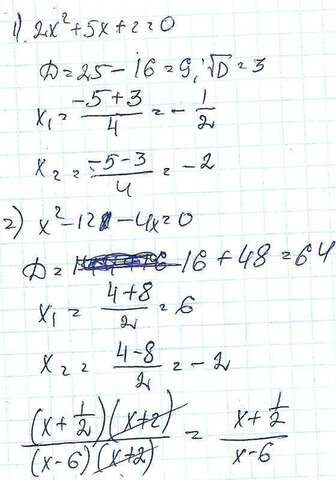 1) 2x²+5x+2=0
D=25-16=9; √D=3
x₁= (-5+3)/4 = -1/2
x₂= (-5-3)/4 = -2
2) x²-12-4x=0
D= 16+48=64
x₁= (4+8)/2 = 6
x₂= (4-8)/2 = -2
((x+1/2)(x+2))/((x-6)(x+2)) = (x+1/2)/(x-6)